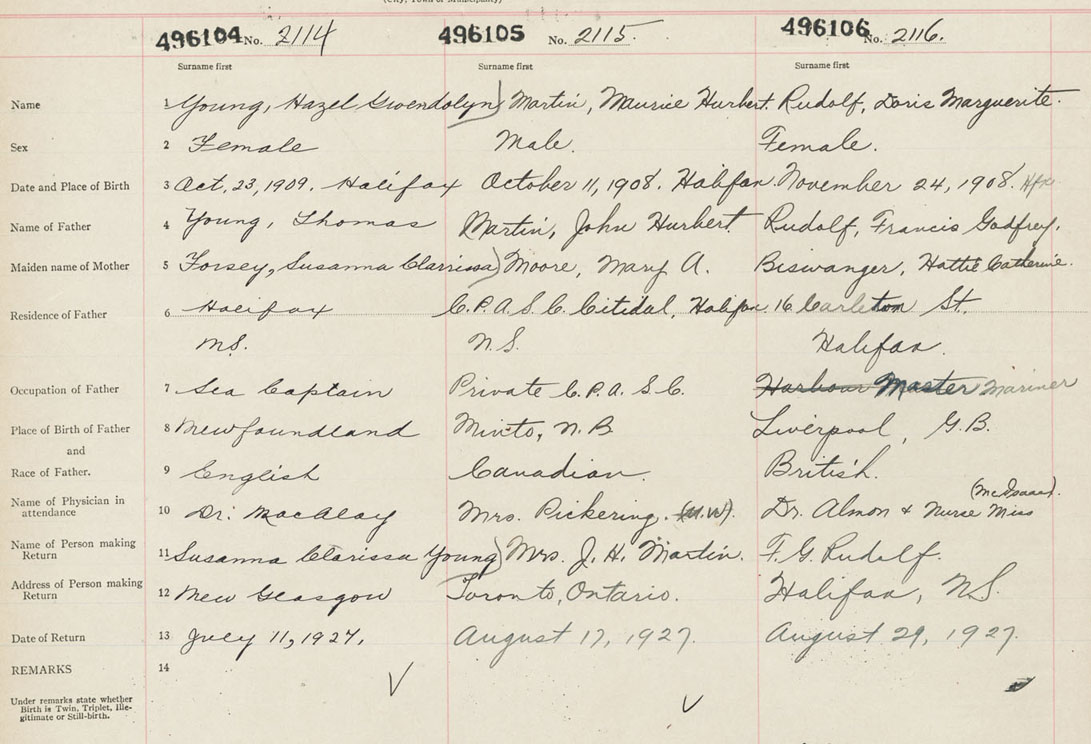 (City, Town or Municipality)
496104 No. 2114 496105 No. 2115. 496106 No. 2116.
Surname first Surname first Surname first
Name 1 Young, Hazel Gwendolyn) Martin, Maurice Hurbert. Rudolf, Doris Marguerite.
Sex 2 Female Male. Female.
Date and Place of Birth 3 Oct, 23, 1909. Halifax October 11, 1908. Halifax. November 24, 1908. Hfx
Name of Father 4 Young, Thomas Martin, John Hurbert Rudolf, Francis Godfrey.
Maiden name of Mother 5 Forsey, Susanna Clarrissa) Moore, Mary A. Biswanger, Hattie Catherine.
Residence of Father 6 Halifax C.P.A.S.C. Citidal, Halifax. 16 Carleton St.
N.S. N.S. Halifax.
Occupation of Father 7 Sea Captain Private C.P.A.S.C. Harbour Master Mariner
Place of Birth of Father 8 Newfoundland Minto, N.B. Liverpool, G.B.
and
Race of Father. 9 English Canadian. British.
(McIsaac).
Name of Physician in
attendance 10 Dr. MacAlay Mrs. Pickering. (M.W). Dr. Almon & Nurse Miss
Name of Person making
Return 11 Susanna Clarissa Young) Mrs. J. H. Martin. F. G. Rudolf.
Address of Person making
Return 12 New Glasgow Toronto, Ontario. Halifax, N.S.
Date of Return 13 July 11, 1927. August 17, 1927. August 29, 1927.
REMARKS 14
Under remarks state whether
Birth is Twin, Triplet, Ille-
gitimate or Still-birth.